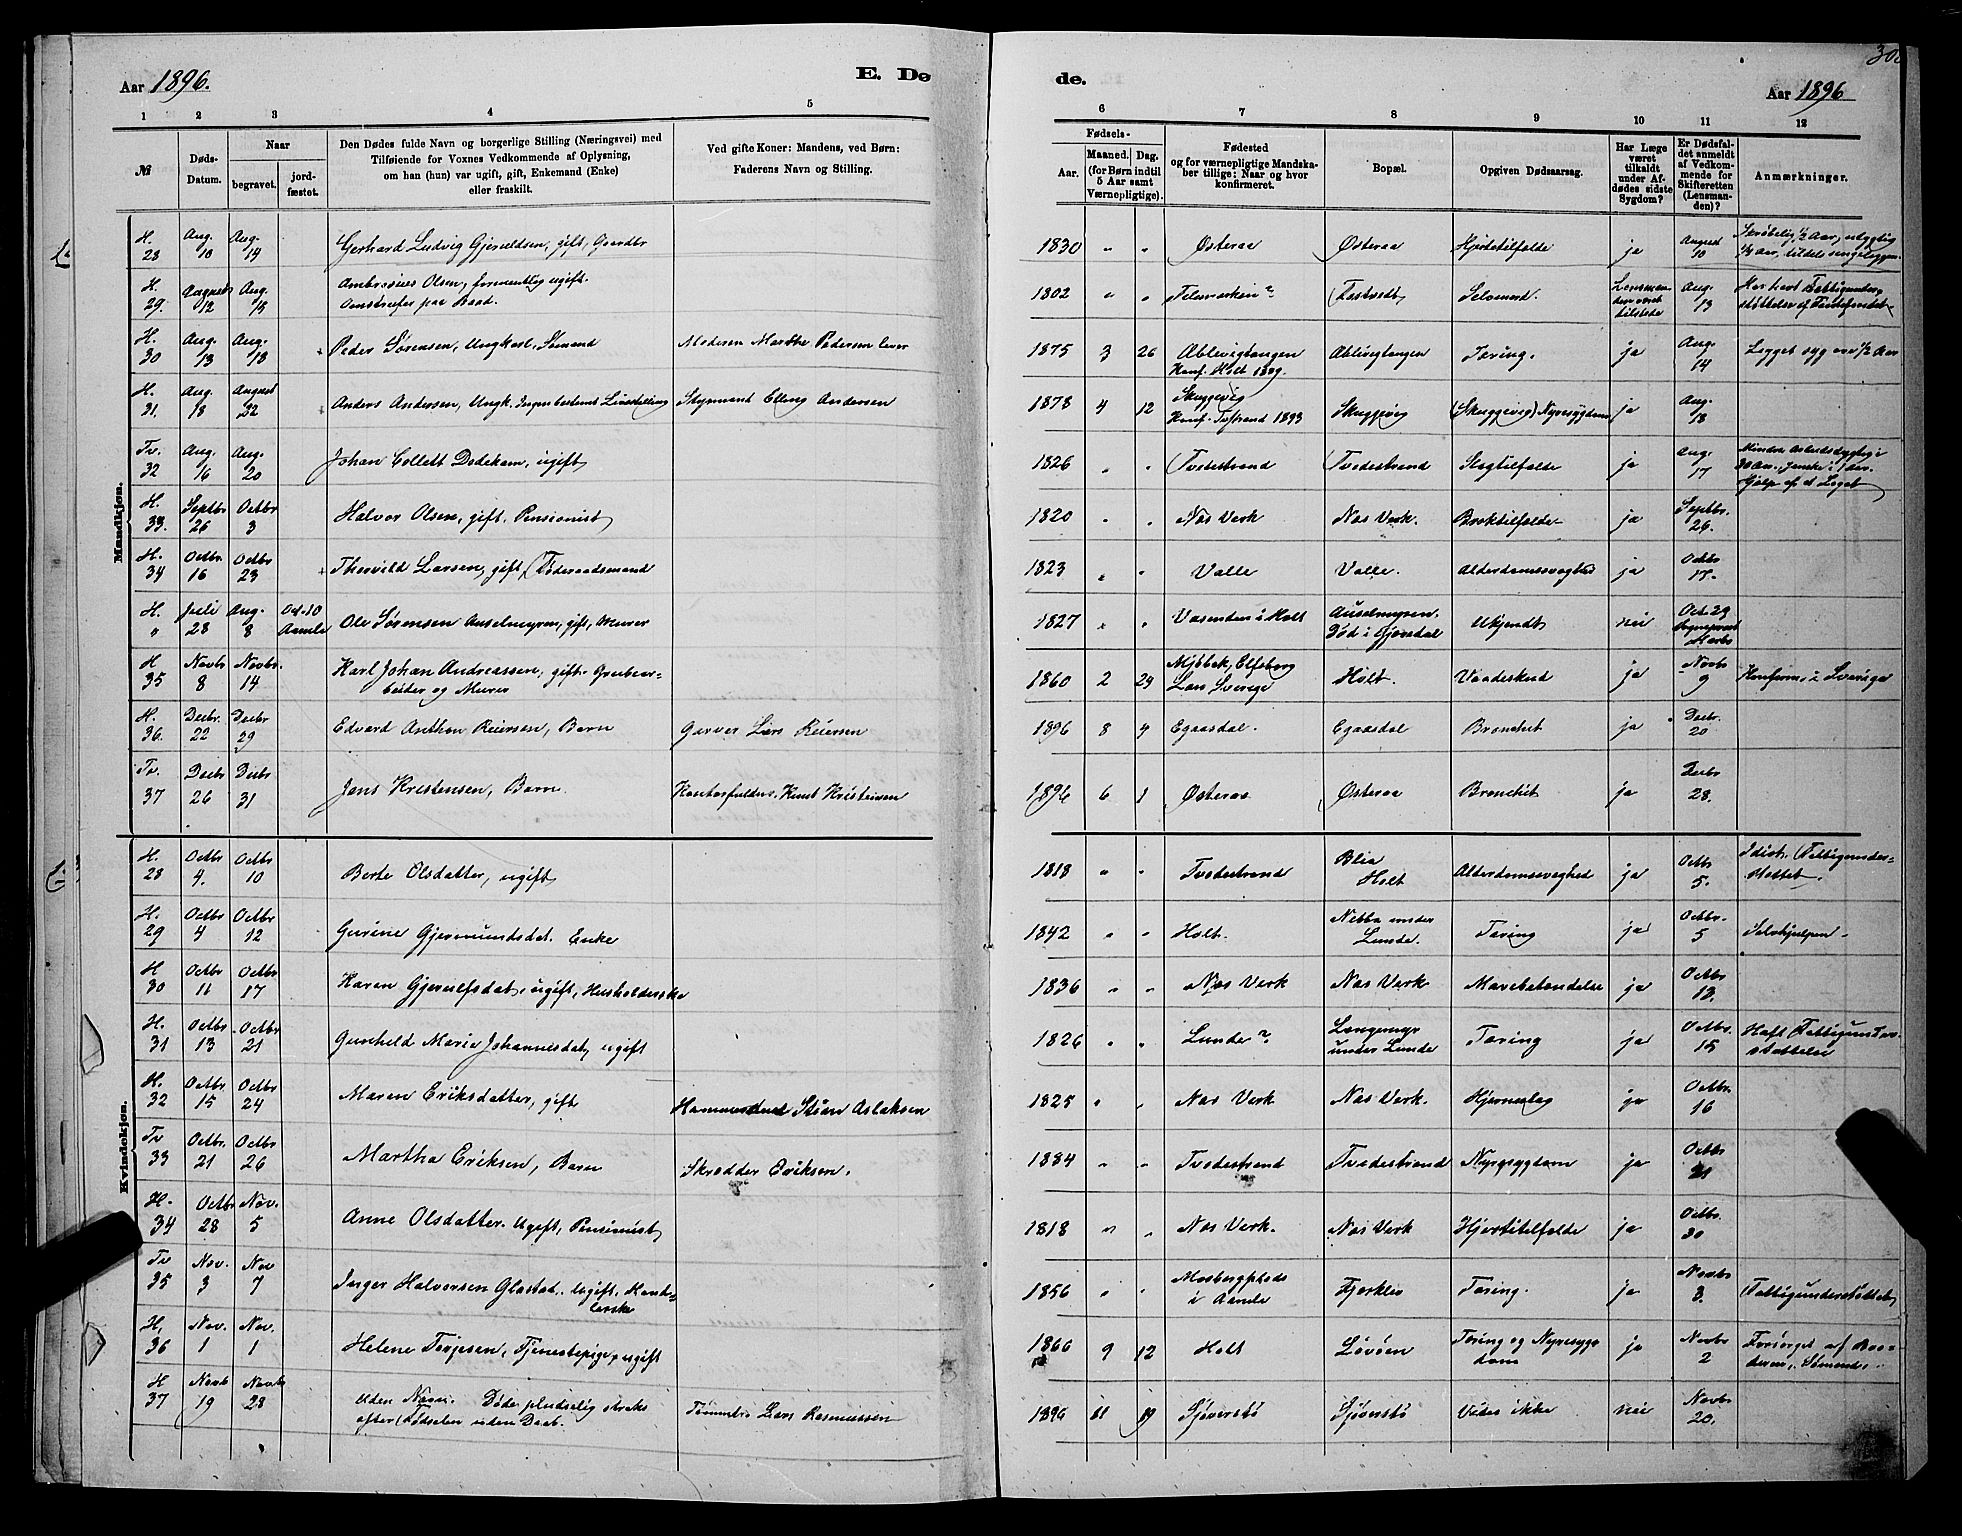 Aar 1896.
E. Dø
de.
30
Aar 1896
1 2 3 4 5 6 7 8 9 10 11 12
№
Døds-
Datum.
Naar
begravet.
jord-
fæstet.
Den Dødes fulde Navn og borgerlige Stilling (Næringsvei) med
Tilføiende for Voxnes Vedkommende af Oplysning,
om han (hun) var ugift, gift, Enkemand (Enke)
eller fraskilt.
Ved gifte Koner: Mandens, ved Børn:
Faderens Navn og Stilling.
Fødsels-
Aar.
Maaned. Dag.
(for Børn indtil
5 Aar samt
Værnepligtige).
Fødested
og for værnepligtige Mandska-
ber tillige: Naar og hvor
konfirmeret.
Bopæl.
Opgiven Dødsaarsag.
Har Læge
været
tilkaldt
under Af-
dødes sidste
Sygdom?
Er Dødsfal-
det anmeldt
af Vedkom-
mende for
Skifteretten
(Lensman-
den)?
Anmærkninger.
Mandkjøn.
H. 28 Aug. 10 Aug. 14 Gerhard Ludvig Gjeruldsen, gift, Gaardbr 1830 " " Østeraa Østeraa Hjertetilfælde ja August 10 Skrøbelig 1/2 Aar,
1/4 Aar, tildels sengeliggen.
H. 29. August 12 Aug. 15 Ambrosius Olsen, formentlig ugift. 1802 " " Telemarken? Selvmord. Aug. 13 Har havt Fattigunder-
støttelse af
H. 30 Aug. 13 Aug. 18 Peder Sørensen, Ungkarl, Sømand Moderen Marthe Pedersen lever 1875 3 26 Ablevigtangen Ablevigtangen Tæring. ja Aug. 14 Ligget syg over 1/2 Aar
Konf. Holt 1889.
H. 31. Aug. 18 August 22 Anders Andersen, Ungk. Ingen bestemt Livsstilling Styrmand Elling Andersen 1878 4 12 Skuggevig Skuggevig (Skuggevig) Nyresygdom ja Aug. 18
Konf. Tvstrand 1893
Tv. 32 Aug. 16 Aug. 20 Johan Collett Dedekam, ugift 1826 " " Tvedestrand Tvedestrand Slagtilfælde ja Aug. 17 Mindre arbeidsdygtig i
30 Aar, ganske i 1 Aar.
Hjælp af et Legat
H. 33. Septbr 26 Octbr 3 Halvor Olsen, gift, Pensionist 1820 " " Næs Verk Næs Verk. Broktilfælde ja Septbr. 26.
H. 34 Octbr. 16 Octbr 23 Thorvild Larsen, gift, Føderaadsmand 1823 " " Valle Valle. Alderdomssvaghed ja Octbr 17.
H. " Juli 28 Aug. 8 Oct. 10 Aamli Ole Sørensen Auselmyren, gift, Murer 1827 " " Vasenden i Holt Auselmyren. Ukjendt nei Oct. 29
Død i Gjøvdal
H 35 Novbr 8 Novbr. 14 Karl Johan Andreassen, gift. Grubear- 1860 2 24 Mjöbæk, Elfsborg Holt. Vaadeskud ja Novbr 9 Konfirm. i Sverige
beider og Murer
Län Sverige
H. 36. Decbr. 22 Decbr 29 Edvard Anthon Reiersen, Barn Garver Lars Reiersen 1896 8 4 Egaasdal. Egaasdal Bronchit ja Decbr. 20
Tv. 37 Decbr 26 Decbr 31 Jens Kristensen, Barn. Knut Kristensen 1896 6 1 Østeraa Østeraa Bronchit ja Decbr 28.
Kvindekjøn.
H. 28 Octbr 4. Octbr 10 Berte Olsdatter, ugift 1818 " " Tvedestrand Holt Alderdomssvaghed ja Octbr 5. Fattigunder-
støttet.
H. 29 Octbr 4 Octbr 12 Gurine Gjermundsdat. Enke 1842 " " Holt. Nebba under Lunde. Tæring ja Octbr. 5 Selvhjulpen.
H 30 Octbr 11 Octbr 17 Karen Gjerulfsdat., ugift, Husholderske 1836 " " Næs Verk Næs Verk Mavebetændelse ja Octbr 13.
H. 31 Octbr 13 Octbr 21 Gunhild Marie Johannesdat, ugift 1826 " " Lunde? Langemyr under Lunde Tæring ja Octbr 15 Havt Fattigunder-
støttelse
H. 32 Octbr 15 Octbr 24 Maren Eriksdatter, gift Hammersmed Stian Aslaksen 1825 " " Næs Verk Næs Verk. Hjerneslag ja Octbr 16
Tv 33 Octbr. 21 Octbr 26 Martha Eriksen, Barn Skrædder Eriksen. 1884 " " Tvedestrand Tvedestrand Nyresygdom ja Octbr 21
H. 34 Octbr 28 Nov. 5 Anne Olsdatter. Ugift, Pensionist 1818 " " Næs Verk. Næs Verk Hjertetilfælde ja Octbr. 30
Tv 35 Nov. 3 Nov 7 Inger Halvorsen Glastad. Ugift. Hand- 1856 " " Mosbergpleds i Aamli Fjærkleiv Tæring. ja Novbr 3. Fattigunderstøttet
lerske
H, 36 Nov. 1 Nov. 1 Helene Terjesen, Tjenestepige, ugift 1866 9 12 Holt Løvøen Tæring og Nyresyg- ja Novbr 2 Forsørget af Bro-
dom
deren, Sømand.
H 37 Novb 19 Novbr 28 Uden Navn. Døde pludselig straks Tømmerm. Lars Rasmussen 1896 11 19 Sjøverstø Sjøverstø Vides ikke nei Novbr 20.
efter Fødselen uden Daab.